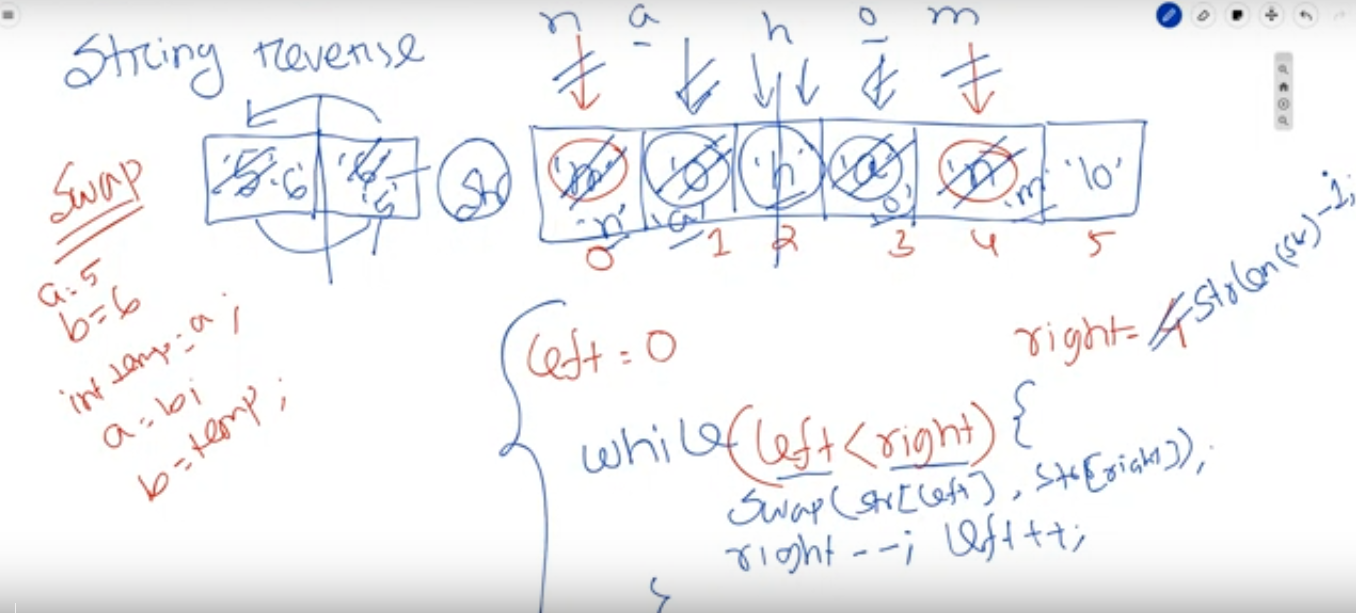 String reverse
n a h o m
Swap
'5' '6' '6' '5'
Str
'm' 'o' 'h' 'a' 'n' '\0'
'n' 'a' 'o' 'm'
0 1 2 3 4 5
a=5
b=6
int temp=a;
a=b;
b=temp;
left=0
right=4 strlen(str)-1;
while(left<right) {
Swap(str[left], str[right]);
right--; left++;
}